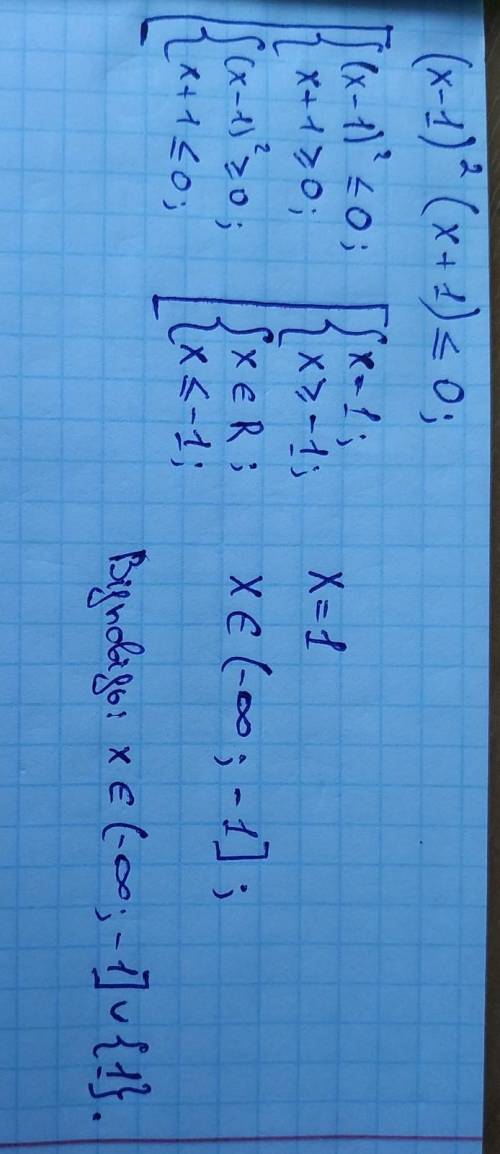 (x-1)² (x+1) ≤ 0;
[ { (x-1)² ≤ 0; [ { x = 1; x = 1
{ x+1 ≥ 0; { x ≥ -1;
{ (x-1)² ≥ 0; { x ∈ R; x ∈ (-∞; -1];
{ x+1 ≤ 0; { x ≤ -1;
Відповідь: x ∈ (-∞; -1] ∪ {1}.